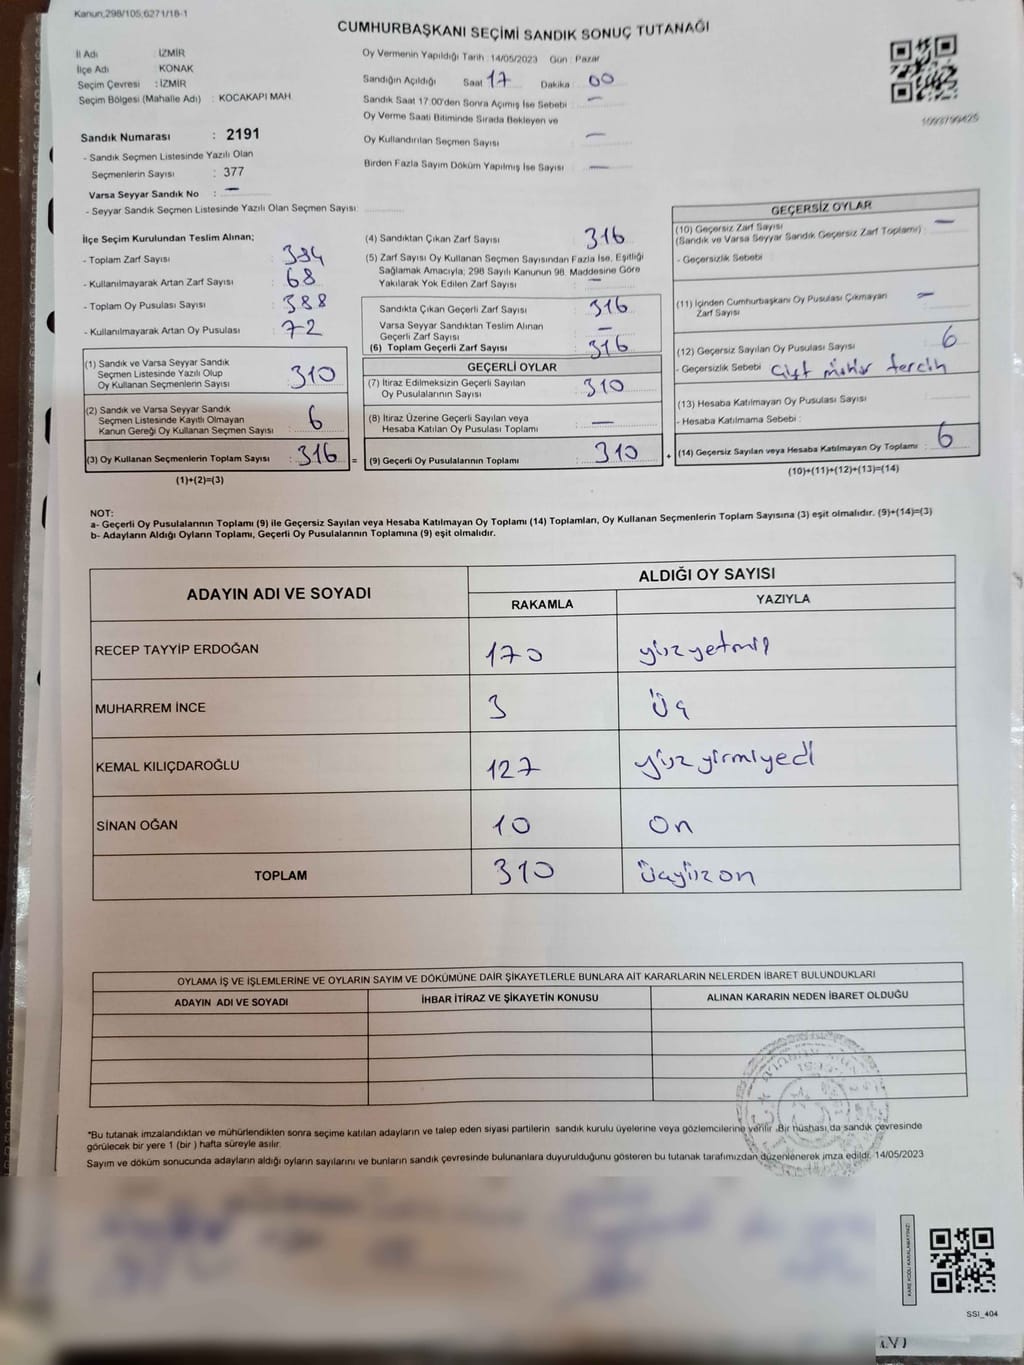 Kanun,298/105,6271/18-1
CUMHURBAŞKANI SEÇİMİ SANDIK SONUÇ TUTANAĞI
İl Adı : İZMİR
İlçe Adı : KONAK
Seçim Çevresi : İZMİR
Seçim Bölgesi (Mahalle Adı) : KOCAKAPI MAH.
Sandık Numarası : 2191
- Sandık Seçmen Listesinde Yazılı Olan
Seçmenlerin Sayısı : 377
Varsa Seyyar Sandık No : —
- Seyyar Sandık Seçmen Listesinde Yazılı Olan Seçmen Sayısı:
Oy Vermenin Yapıldığı Tarih : 14/05/2023 Gün : Pazar
Sandığın Açıldığı Saat 17 Dakika : 00
Sandık Saat 17:00'den Sonra Açımış İse Sebebi : —
Oy Verme Saati Bitiminde Sırada Bekleyen ve
Oy Kullandırılan Seçmen Sayısı : —
Birden Fazla Sayım Döküm Yapılmış İse Sayısı : —
1093799425
İlçe Seçim Kurulundan Teslim Alınan;
- Toplam Zarf Sayısı : 384
- Kullanılmayarak Artan Zarf Sayısı : 68
- Toplam Oy Pusulası Sayısı : 388
- Kullanılmayarak Artan Oy Pusulası : 72
(1) Sandık ve Varsa Seyyar Sandık
Seçmen Listesinde Yazılı Olup
Oy Kullanan Seçmenlerin Sayısı : 310
(2) Sandık ve Varsa Seyyar Sandık
Seçmen Listesinde Kayıtlı Olmayan
Kanun Gereği Oy Kullanan Seçmen Sayısı : 6
(3) Oy Kullanan Seçmenlerin Toplam Sayısı : 316 =
(1)+(2)=(3)
(4) Sandıktan Çıkan Zarf Sayısı : 316
(5) Zarf Sayısı Oy Kullanan Seçmen Sayısından Fazla İse, Eşitliği
Sağlamak Amacıyla; 298 Sayılı Kanunun 98. Maddesine Göre
Yakılarak Yok Edilen Zarf Sayısı : —
Sandıkta Çıkan Geçerli Zarf Sayısı : 316
Varsa Seyyar Sandıktan Teslim Alınan
Geçerli Zarf Sayısı : —
(6) Toplam Geçerli Zarf Sayısı : 316
GEÇERLİ OYLAR
(7) İtiraz Edilmeksizin Geçerli Sayılan
Oy Pusulalarının Sayısı : 310
(8) İtiraz Üzerine Geçerli Sayılan veya
Hesaba Katılan Oy Pusulası Toplamı : —
(9) Geçerli Oy Pusulalarının Toplamı : 310 +
GEÇERSİZ OYLAR
(10) Geçersiz Zarf Sayısı : —
(Sandık ve Varsa Seyyar Sandık Geçersiz Zarf Toplamı)
- Geçersizlik Sebebi :
(11) İçinden Cumhurbaşkanı Oy Pusulası Çıkmayan : —
Zarf Sayısı
(12) Geçersiz Sayılan Oy Pusulası Sayısı : 6
- Geçersizlik Sebebi : Çift mühür tercih
(13) Hesaba Katılmayan Oy Pusulası Sayısı :
- Hesaba Katılmama Sebebi :
(14) Geçersiz Sayılan veya Hesaba Katılmayan Oy Toplamı : 6
(10)+(11)+(12)+(13)=(14)
NOT:
a- Geçerli Oy Pusulalarının Toplamı (9) ile Geçersiz Sayılan veya Hesaba Katılmayan Oy Toplamı (14) Toplamları, Oy Kullanan Seçmenlerin Toplam Sayısına (3) eşit olmalıdır. (9)+(14)=(3)
b- Adayların Aldığı Oyların Toplamı, Geçerli Oy Pusulalarının Toplamına (9) eşit olmalıdır.
ADAYIN ADI VE SOYADI ALDIĞI OY SAYISI
RAKAMLA YAZIYLA
RECEP TAYYİP ERDOĞAN 170 yüzyetmiş
MUHARREM İNCE 3 Üç
KEMAL KILIÇDAROĞLU 127 yüzyirmiyedi
SİNAN OĞAN 10 On
TOPLAM 310 Üçyüzon
OYLAMA İŞ VE İŞLEMLERİNE VE OYLARIN SAYIM VE DÖKÜMÜNE DAİR ŞİKAYETLERLE BUNLARA AİT KARARLARIN NELERDEN İBARET BULUNDUKLARI
ADAYIN ADI VE SOYADI İHBAR İTİRAZ VE ŞİKAYETİN KONUSU ALINAN KARARIN NEDEN İBARET OLDUĞU
*Bu tutanak imzalandıktan ve mühürlendikten sonra seçime katılan adayların ve talep eden siyasi partilerin sandık kurulu üyelerine veya gözlemcilerine verilir .Bir nüshası da sandık çevresinde
görülecek bir yere 1 (bir ) hafta süreyle asılır.
Sayım ve döküm sonucunda adayların aldığı oyların sayılarını ve bunların sandık çevresinde bulunanlara duyurulduğunu gösteren bu tutanak tarafımızdan düzenlenerek imza edildi. 14/05/2023
KARE KODU KARALAMAYINIZ!
SSI_404